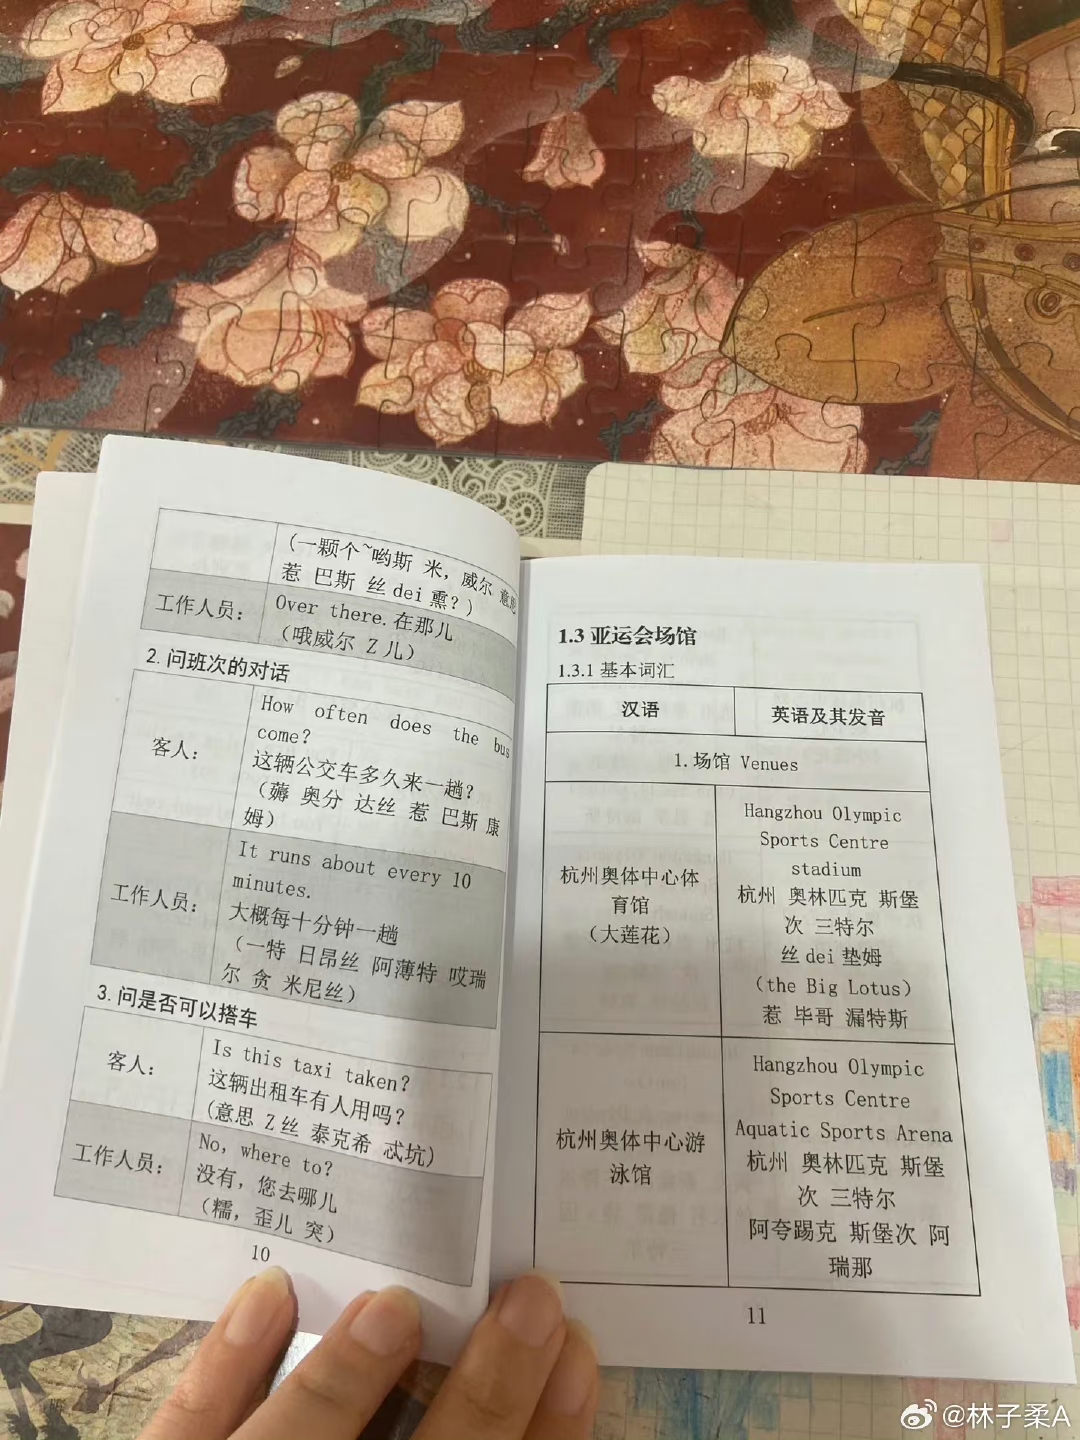 (一颗个~哟斯 米，威尔 意思
惹 巴斯 丝 dei 熏？)
工作人员：
Over there.在那儿
（哦威尔 Z 儿）
2. 问班次的对话
客人：
How often does the bus
come?
这辆公交车多久来一趟？
（薅 奥分 达丝 惹 巴斯 康
姆）
工作人员：
It runs about every 10
minutes.
大概每十分钟一趟
（一特 日昂丝 阿薄特 哎瑞
尔 贪 米尼丝）
3. 问是否可以搭车
客人：
Is this taxi taken?
这辆出租车有人用吗？
(意思 Z 丝 泰克希 忒坑)
工作人员：
No, where to?
没有，您去哪儿
（糯，歪儿 突）
10
1.3 亚运会场馆
1.3.1 基本词汇
汉语
英语及其发音
1.场馆 Venues
杭州奥体中心体
育馆
（大莲花）
Hangzhou Olympic
Sports Centre
stadium
杭州 奥林匹克 斯堡
次 三特尔
丝 dei 垫姆
（the Big Lotus）
惹 毕哥 漏特斯
杭州奥体中心游
泳馆
Hangzhou Olympic
Sports Centre
Aquatic Sports Arena
杭州 奥林匹克 斯堡
次 三特尔
阿夸踢克 斯堡次 阿
瑞那
11
@林子柔A